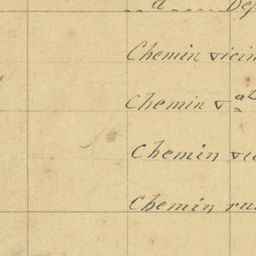 d Dép
Chemin vicin
Chemin v al
Chemin vic
Chemin ru